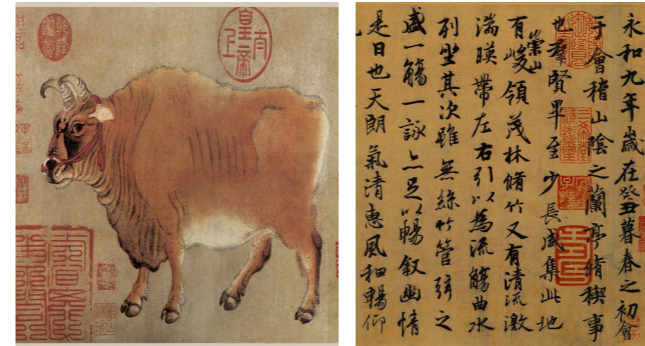 皇帝
永和九年歲在癸丑暮春之初會
于會稽山陰之蘭亭脩稧事
也羣賢畢至少長咸集此地
有崇山峻領茂林脩竹又有清流激
湍暎帶左右引以為流觴曲水
列坐其次雖無絲竹管弦之
盛一觴一詠亦足以暢叙幽情
是日也天朗氣清惠風和暢仰